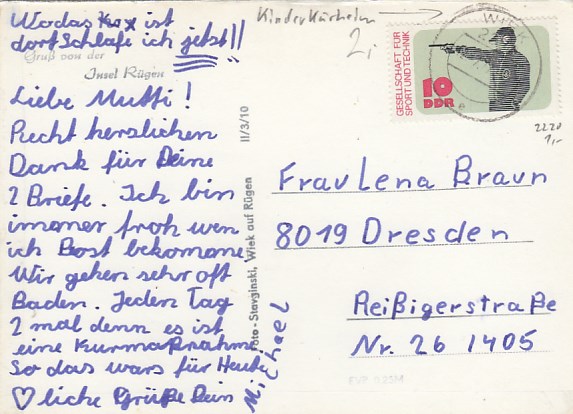 Wo das x ist
dort Schlafe ich jetzt!!
Gruß von der
Insel Rügen
Liebe Mutti!
Recht herzlichen
Dank für Deine
2 Briefe. Ich bin
immer froh wen
ich Post bekomme.
Wir gehen sehr oft
Baden. Jeden Tag
2 mal denn es ist
eine Kurmaßnahme
So das wars für Heute
♡liche Grüße Dein
Michael
Foto-Stavginski, Wiek auf Rügen II/3/10
Kinderkurheim
2,-
GESELLSCHAFT FÜR
SPORT UND TECHNIK
10
DDR
WIEK
2220
1,-
Frau Lena Braun
8019 Dresden
Reißigerstraße
Nr. 26 1405
EVP 0,25M